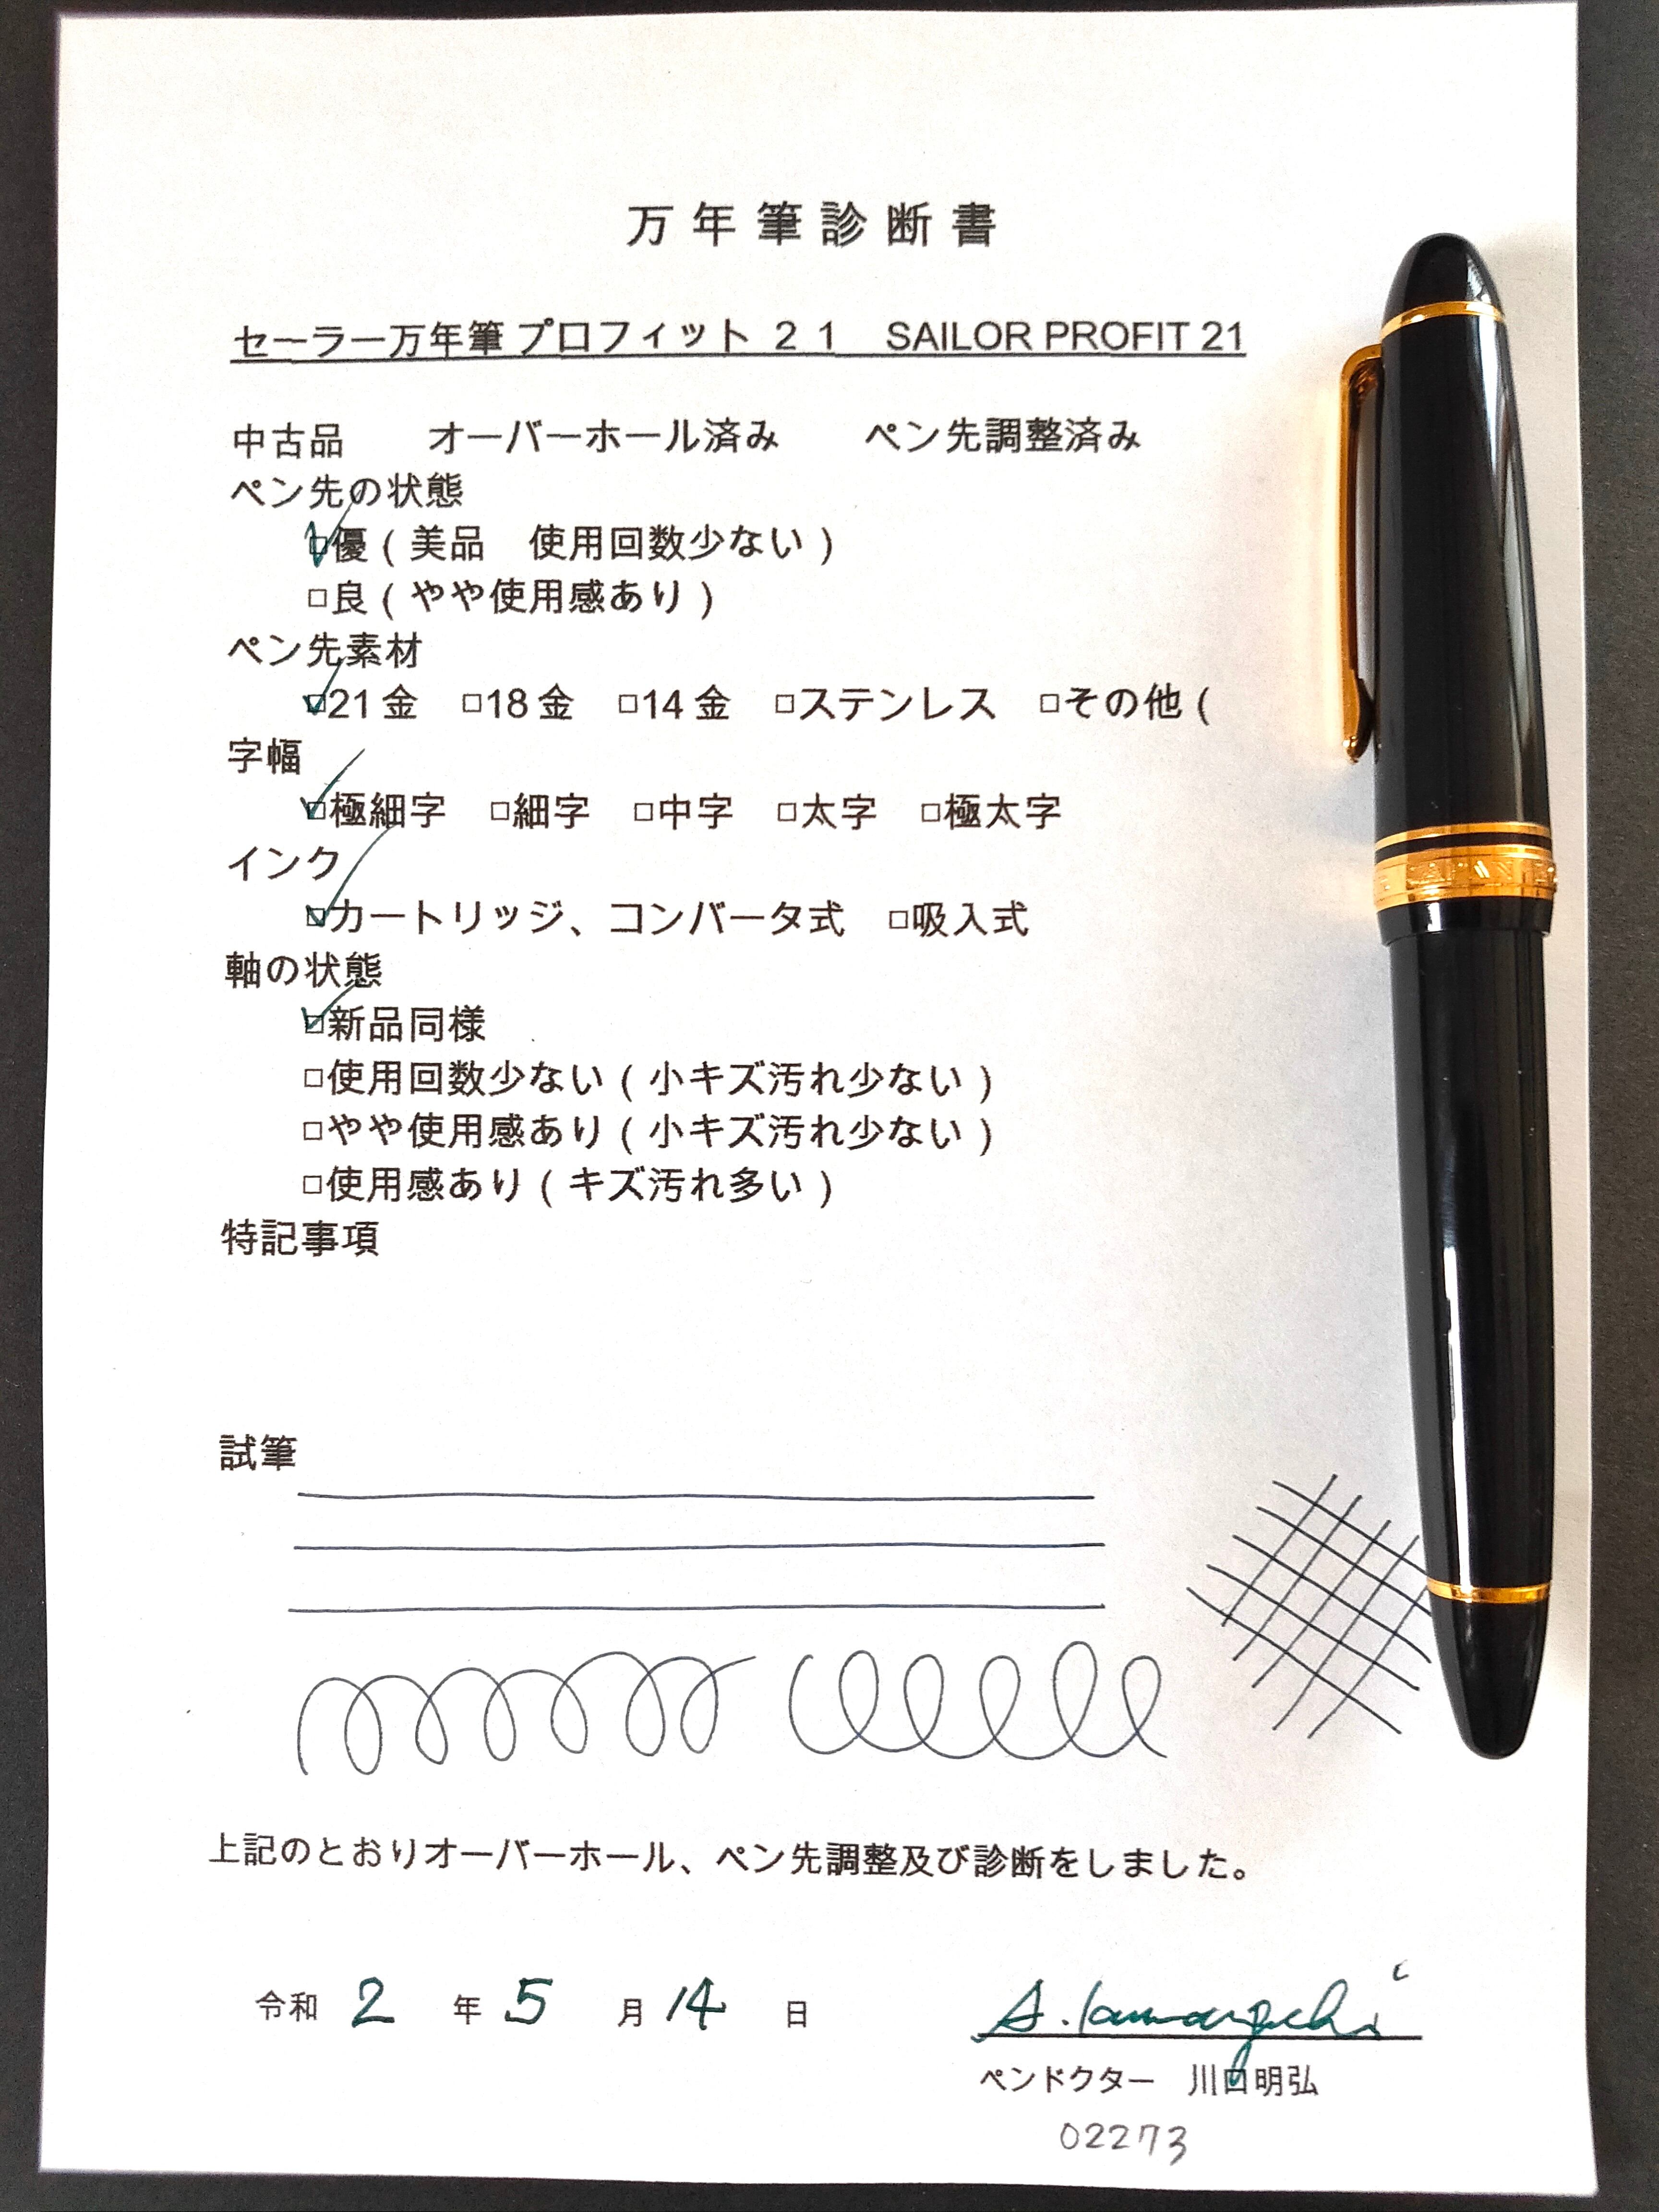 万年筆診断書
セーラー万年筆 プロフィット 21 SAILOR PROFIT 21
中古品 オーバーホール済み ペン先調整済み
ペン先の状態
☑優(美品 使用回数少ない)
□良(やや使用感あり)
ペン先素材
☑21金 □18金 □14金 □ステンレス □その他(
字幅
☑極細字 □細字 □中字 □太字 □極太字
インク
☑カートリッジ、コンバータ式 □吸入式
軸の状態
☑新品同様
□使用回数少ない(小キズ汚れ少ない)
□やや使用感あり(小キズ汚れ少ない)
□使用感あり(キズ汚れ多い)
特記事項
試筆
上記のとおりオーバーホール、ペン先調整及び診断をしました。
令和 2 年 5 月 14 日
ペンドクター 川口明弘
02273